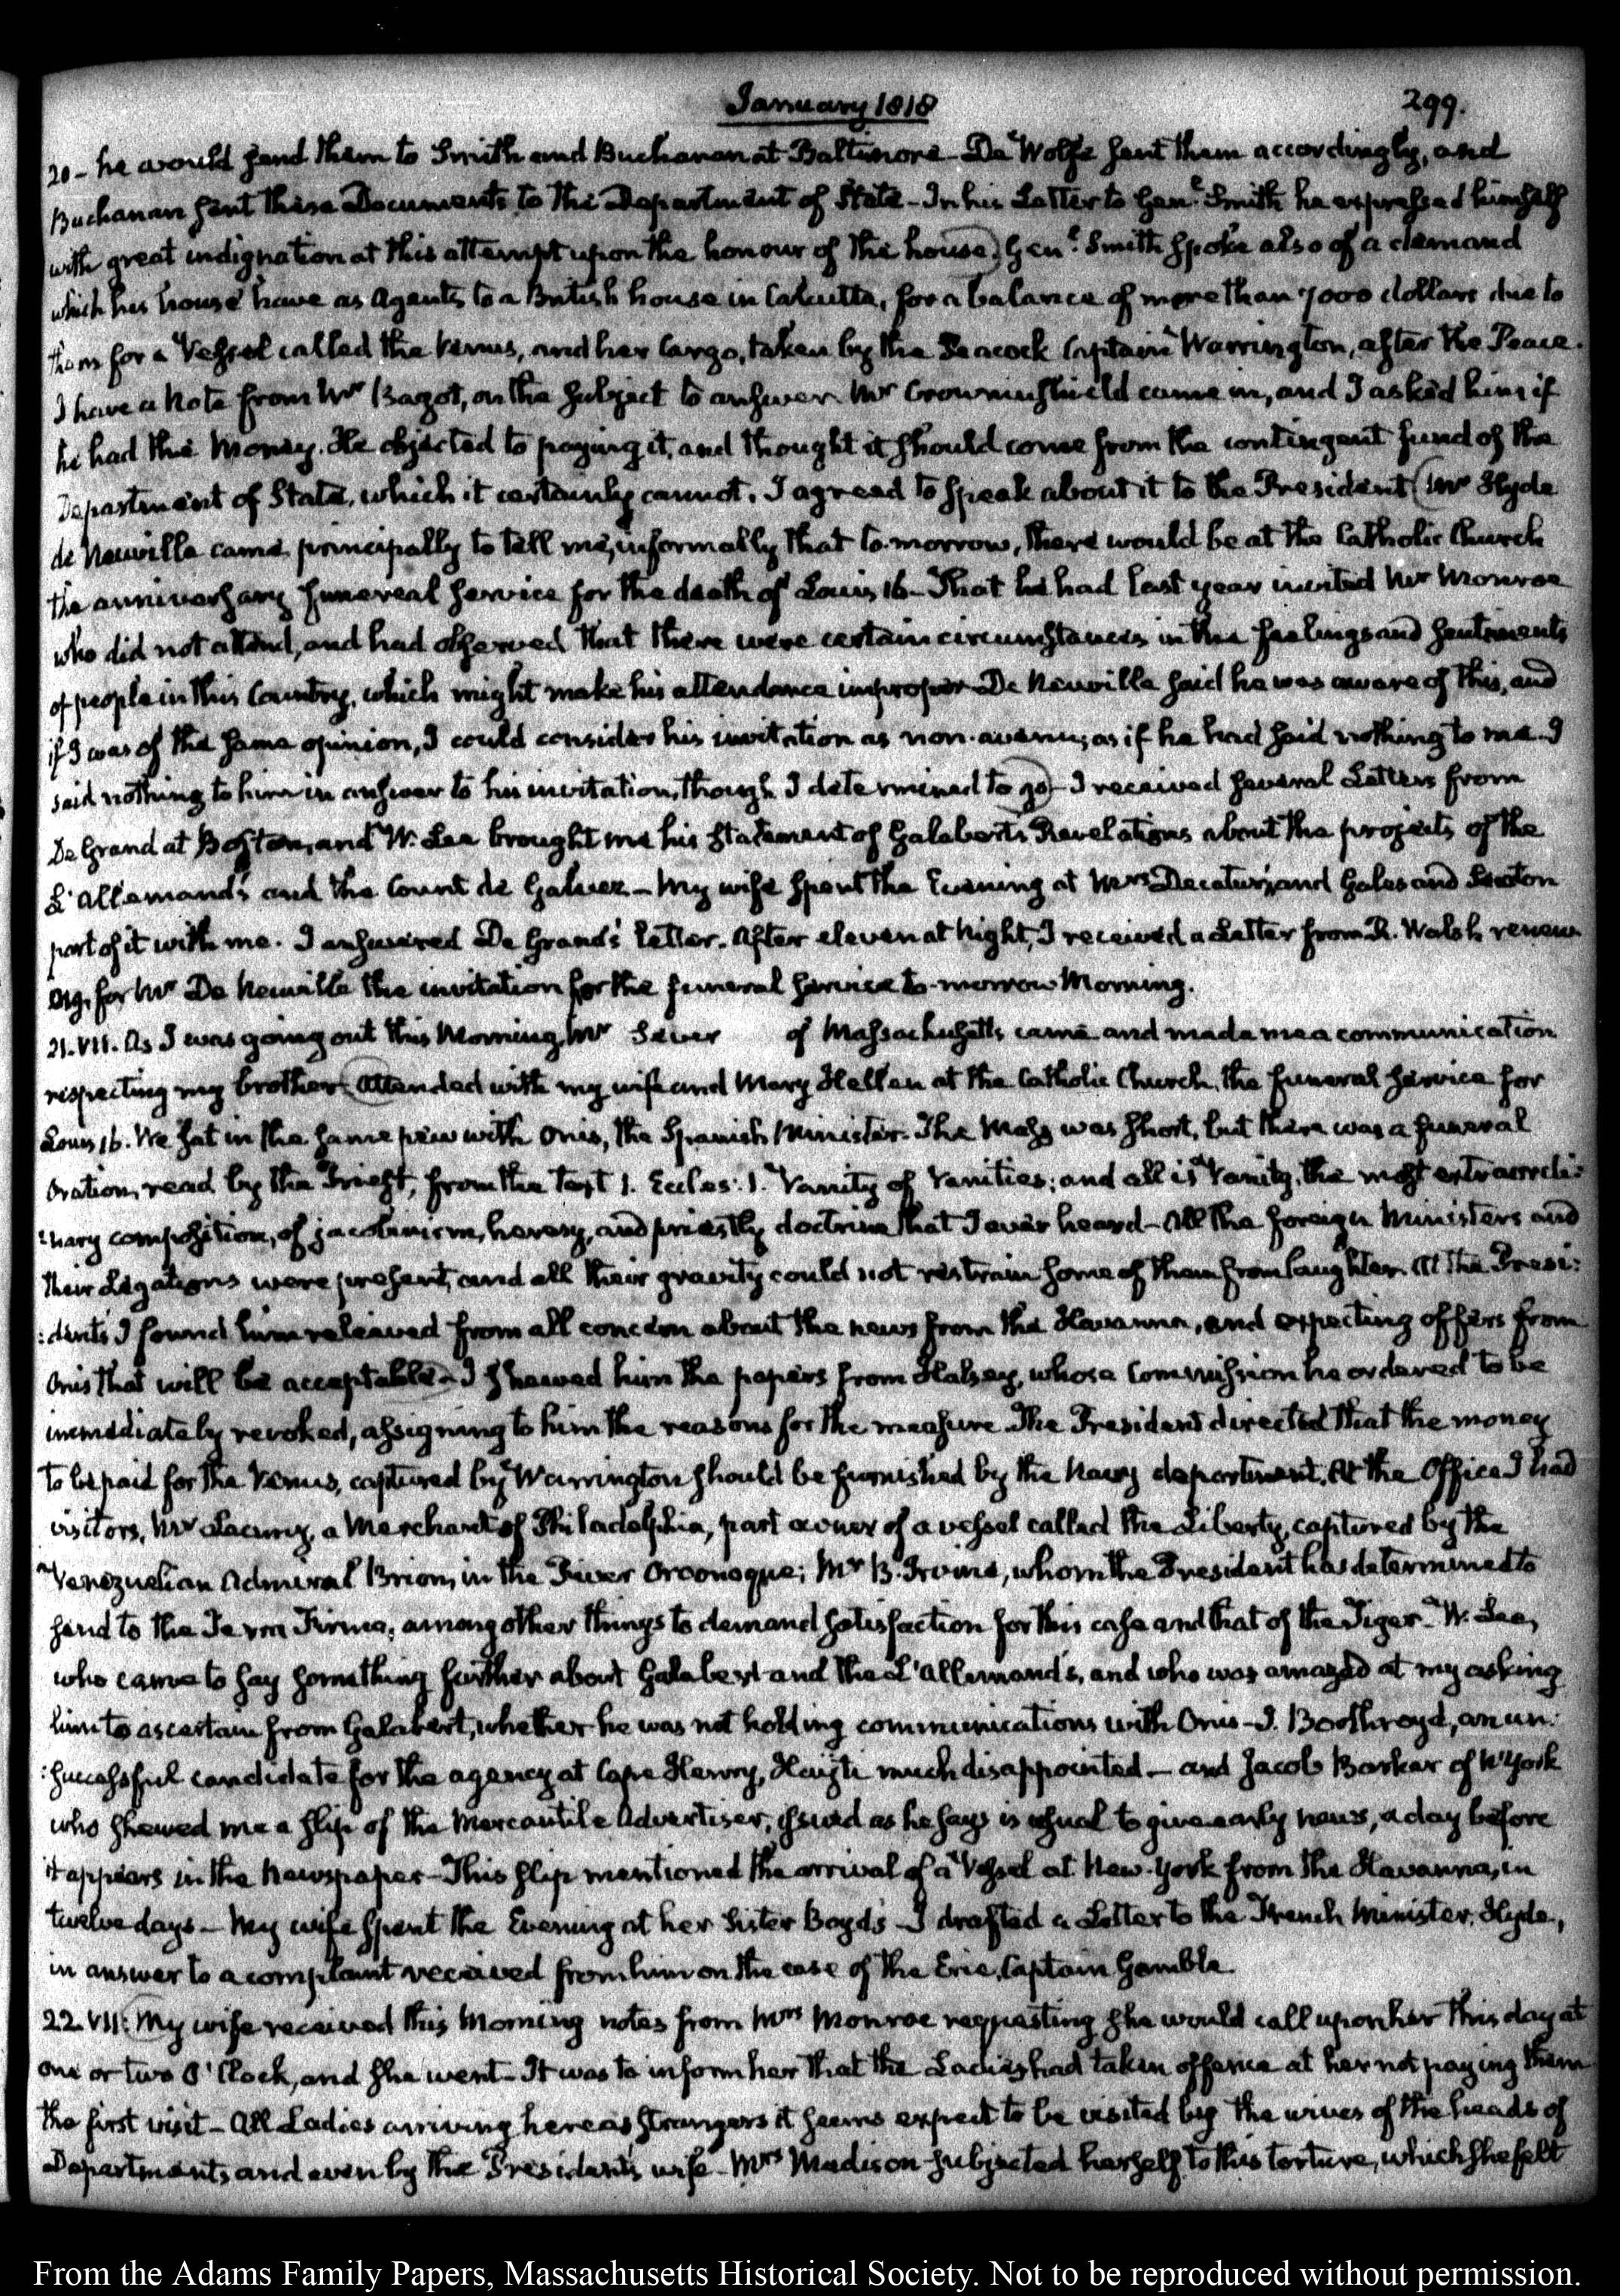 January 1818
299.
20 - he would send them to Smith and Buchanan at Baltimore - De Wolfe sent them accordingly, and
Buchanan sent these Documents to the Department of State - In his Letter to Genl. Smith he expressed himself
with great indignation at this attempt upon the honour of the house) Genl. Smith spoke also of a demand
which his house have as Agents to a British house in Calcutta, for a balance of more than 7000 dollars due to
them for a Vessel called the Venus, and her Cargo, taken by the Peacock Captain Warrington, after the Peace.
I have a Note from Mr Bagot, on the subject to answer. Mr Crowninshield came in, and I asked him if
he had the Money. He objected to paying it, and thought it should come from the contingent fund of the
Department of State, which it certainly cannot. I agreed to speak about it to the President (Mr Hyde
de Neuville came, principally to tell me, informally that to-morrow, there would be at the Catholic Church
the anniversary funereal service for the death of Louis 16 - That he had last year invited Mr Monroe
who did not attend, and had observed that there were certain circumstances in the feelings and sentiments
of people in this Country, which might make his attendance improper - De Neuville said he was aware of this, and
if I was of the same opinion, I could consider his invitation as non-avenue; as if he had said nothing to me. I
said nothing to him in answer to his invitation, though I determined to go) - I received several Letters from
De Grand at Boston, and W. Lee brought me his statement of Galabert's Revelations about the projects of the
L'Allemand's and the Count de Galvez - My wife spent the Evening at Mrs Decatur's, and Gales and Seaton
part of it with me. I answered De Grand's Letter. After eleven at Night, I received a Letter from R. Walsh renew-
ing, for Mr De Neuville the invitation for the funeral service to-morrow Morning.
21. VII. As I was going out this Morning, Mr Sever of Massachusetts came and made me a communication
respecting my brother (Attended with my wife and Mary Hellen at the Catholic Church, the funeral service for
Louis 16. We sat in the same pew with Onis, the Spanish Minister. The Mass was short, but there was a funeral
Oration, read by the Priest, from the text 1. Eccles: 1. Vanity of Vanities; and all is Vanity, the most extraordi:
:nary composition, of jacobinism, heresy, and priestly doctrine that I ever heard - All the foreign Ministers and
their Legations were present, and all their gravity could not restrain some of them from laughter. At the Presi:
:dent's I found him relieved from all concern about the news from the Havanna, and expecting offers from
Onis that will be acceptable) - I shewed him the papers from Halsey, whose Commission he ordered to be
immediately revoked, assigning to him the reasons for the measure. The President directed that the money
to be paid for the Venus, captured by Warrington should be furnished by the Navy department. At the Office I had
visitors, Mr a Merchant of Philadelphia, part owner of a vessel called the Liberty, captured by the
Venezuelian Admiral Brion, in the River Oroonoque; Mr B. Irvine, whom the President has determined to
send to the Terra Firma; among other things to demand satisfaction for this case and that of the Tiger - W. Lee,
who came to say something further about Galabert and the L'Allemand's, and who was amazed at my asking
him to ascertain from Galabert, whether he was not holding communications with Onis - J. Boothroyd, an un:
:successful candidate for the agency at Cape Henry, Hayti much disappointed - and Jacob Barker of N'York
who shewed me a slip of the Mercantile Advertiser, issued as he says is usual to give early news, a day before
it appears in the Newspaper - This slip mentioned the arrival of a Vessel at New-York from the Havanna, in
twelve days - My wife spent the Evening at her Sister Boyd's - I drafted a Letter to the French Minister, Hyde,
in answer to a complaint received from him on the case of the Eric, Captain Gamble.
22. VII: (My wife received this Morning notes from Mrs Monroe requesting she would call upon her this day at
one or two O'Clock, and she went - It was to inform her that the Ladies had taken offence at her not paying them
the first visit - All Ladies arriving here as strangers it seems expect to be visited by the wives of the heads of
Departments, and even by the President's wife - Mrs Madison subjected herself to this torture, which she felt
From the Adams Family Papers, Massachusetts Historical Society. Not to be reproduced without permission.